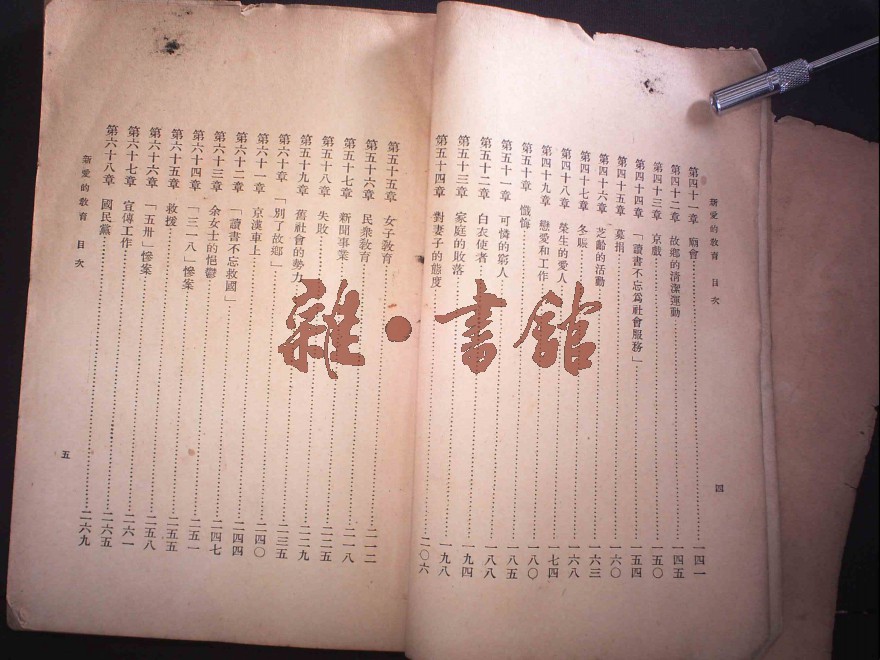 新愛的教育 目次
四
第四十一章 廟會……一四一
第四十二章 故鄉的清潔運動……一四五
第四十三章 京戲……一五〇
第四十四章 「讀書不忘爲社會服務」……一五四
第四十五章 募捐……一六〇
第四十六章 芝齡的活動……一六三
第四十七章 冬賑……一六八
第四十八章 榮生的愛人……一七四
第四十九章 戀愛和工作……一八〇
第五十章 懺悔……一八五
第五十一章 可憐的窮人……一八八
第五十二章 白衣使者……一九四
第五十三章 家庭的敗落……一九八
第五十四章 對妻子的態度……二〇六
第五十五章 女子教育……二一二
第五十六章 民衆教育……二一八
第五十七章 新聞事業……二二五
第五十八章 失敗……二二九
第五十九章 舊社會的勢力……二三五
第六十章 「別了故鄉」……二四〇
第六十一章 京漢車上……二四四
第六十二章 「讀書不忘救國」……二四七
第六十三章 余女士的悒鬱……二五一
第六十四章 「三一八」慘案……二五五
第六十五章 救援……二五八
第六十六章 「五卅」慘案……二六一
第六十七章 宣傳工作……二六五
第六十八章 國民黨……二六九
新愛的教育 目次
五
雜·書館